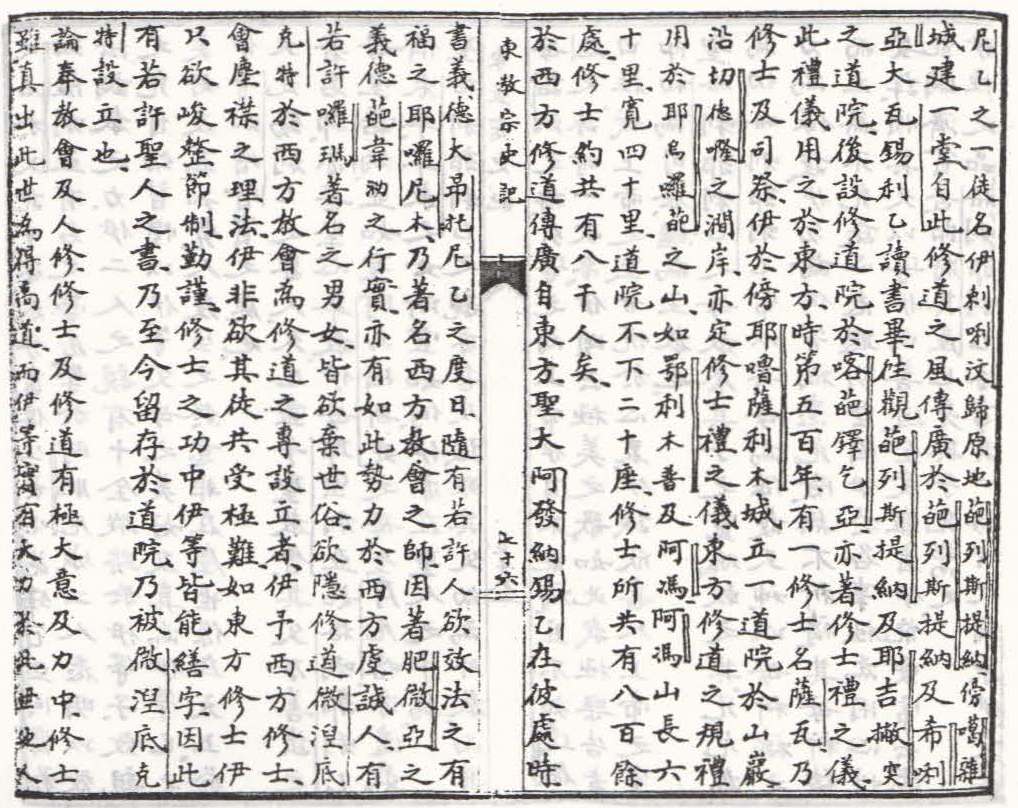 尼乙之一徒名伊剌唎汶歸原地葩列斯提納傍噶雜
城建一堂自此修道之風傳廣於葩列斯提納及希唎
亞大瓦錫利乙讀書畢往觀葩列斯提納及耶吉撇突
之道院後設修道院於喀葩鐸乞亞亦著修士禮之儀
此禮儀用之於東方時第五百年有一修士名薩瓦乃
修士及司祭伊於傍耶嚕薩利木城立一道院於山巖
沿切德噔之澗岸亦定修士禮之儀東方修道之規禮
用於耶烏囉葩之山如鄂利木普及阿馮阿馮山長六
十里寬四十里道院不下二十座修士所共有八百餘
處修士約共有八千人矣
於西方修道傳廣自東方聖大阿發納錫乙在彼處時
東教宗史記
七十六
書義德大昂托尼乙之度日隨有若許人欲效法之有
福之耶囉尼木乃著名西方教會之師因著肥微亞之
義德葩韋泐之行實亦有如此勢力於西方虔誠人有
若許囉瑪著名之男女皆欲棄世俗欲隱修道微湼底
克特於西方教會為修道之專設立者伊予西方修士
會塵襟之理法伊非欲其徒共受極難如東方修士伊
只欲峻整節制勤謹修士之功中伊等皆能繕字因此
有若許聖人之書乃至今留存於道院乃被微湼底克
特設立也
論奉教會及人修修士及修道有極大意及力中修士
雖真出此世為得高道而伊等實有大力於此世